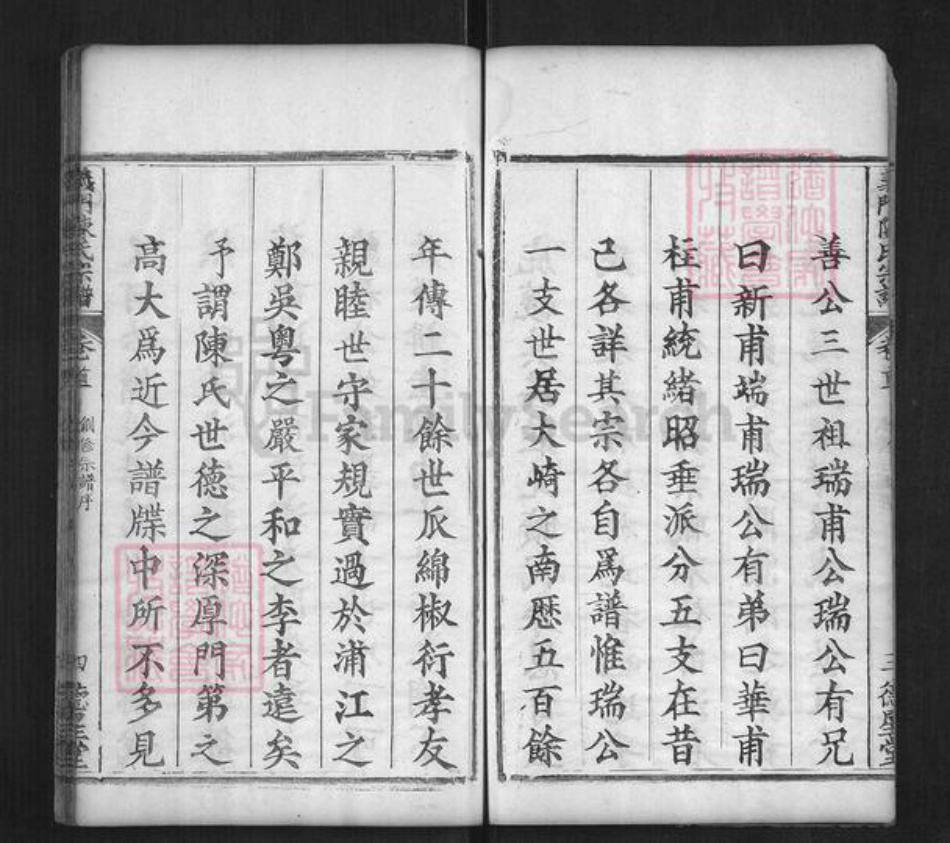 善公三世祖瑞甫公瑞公有兄
曰新甫端甫瑞公有弟曰華甫
柱甫統緒昭垂派分五支在昔
己各詳其宗各自爲譜惟瑞公
一支世居大崎之南歷五百餘
年傳二十餘世瓜綿椒衍孝友
親睦世守家規實過於浦江之
鄭吳粤之嚴平和之李者遠矣
予謂陳氏世德之深厚門第之
高大爲近今譜牒中所不多見
義門陳氏宗譜
卷首
創修宗譜序
四
三
FamilySearch